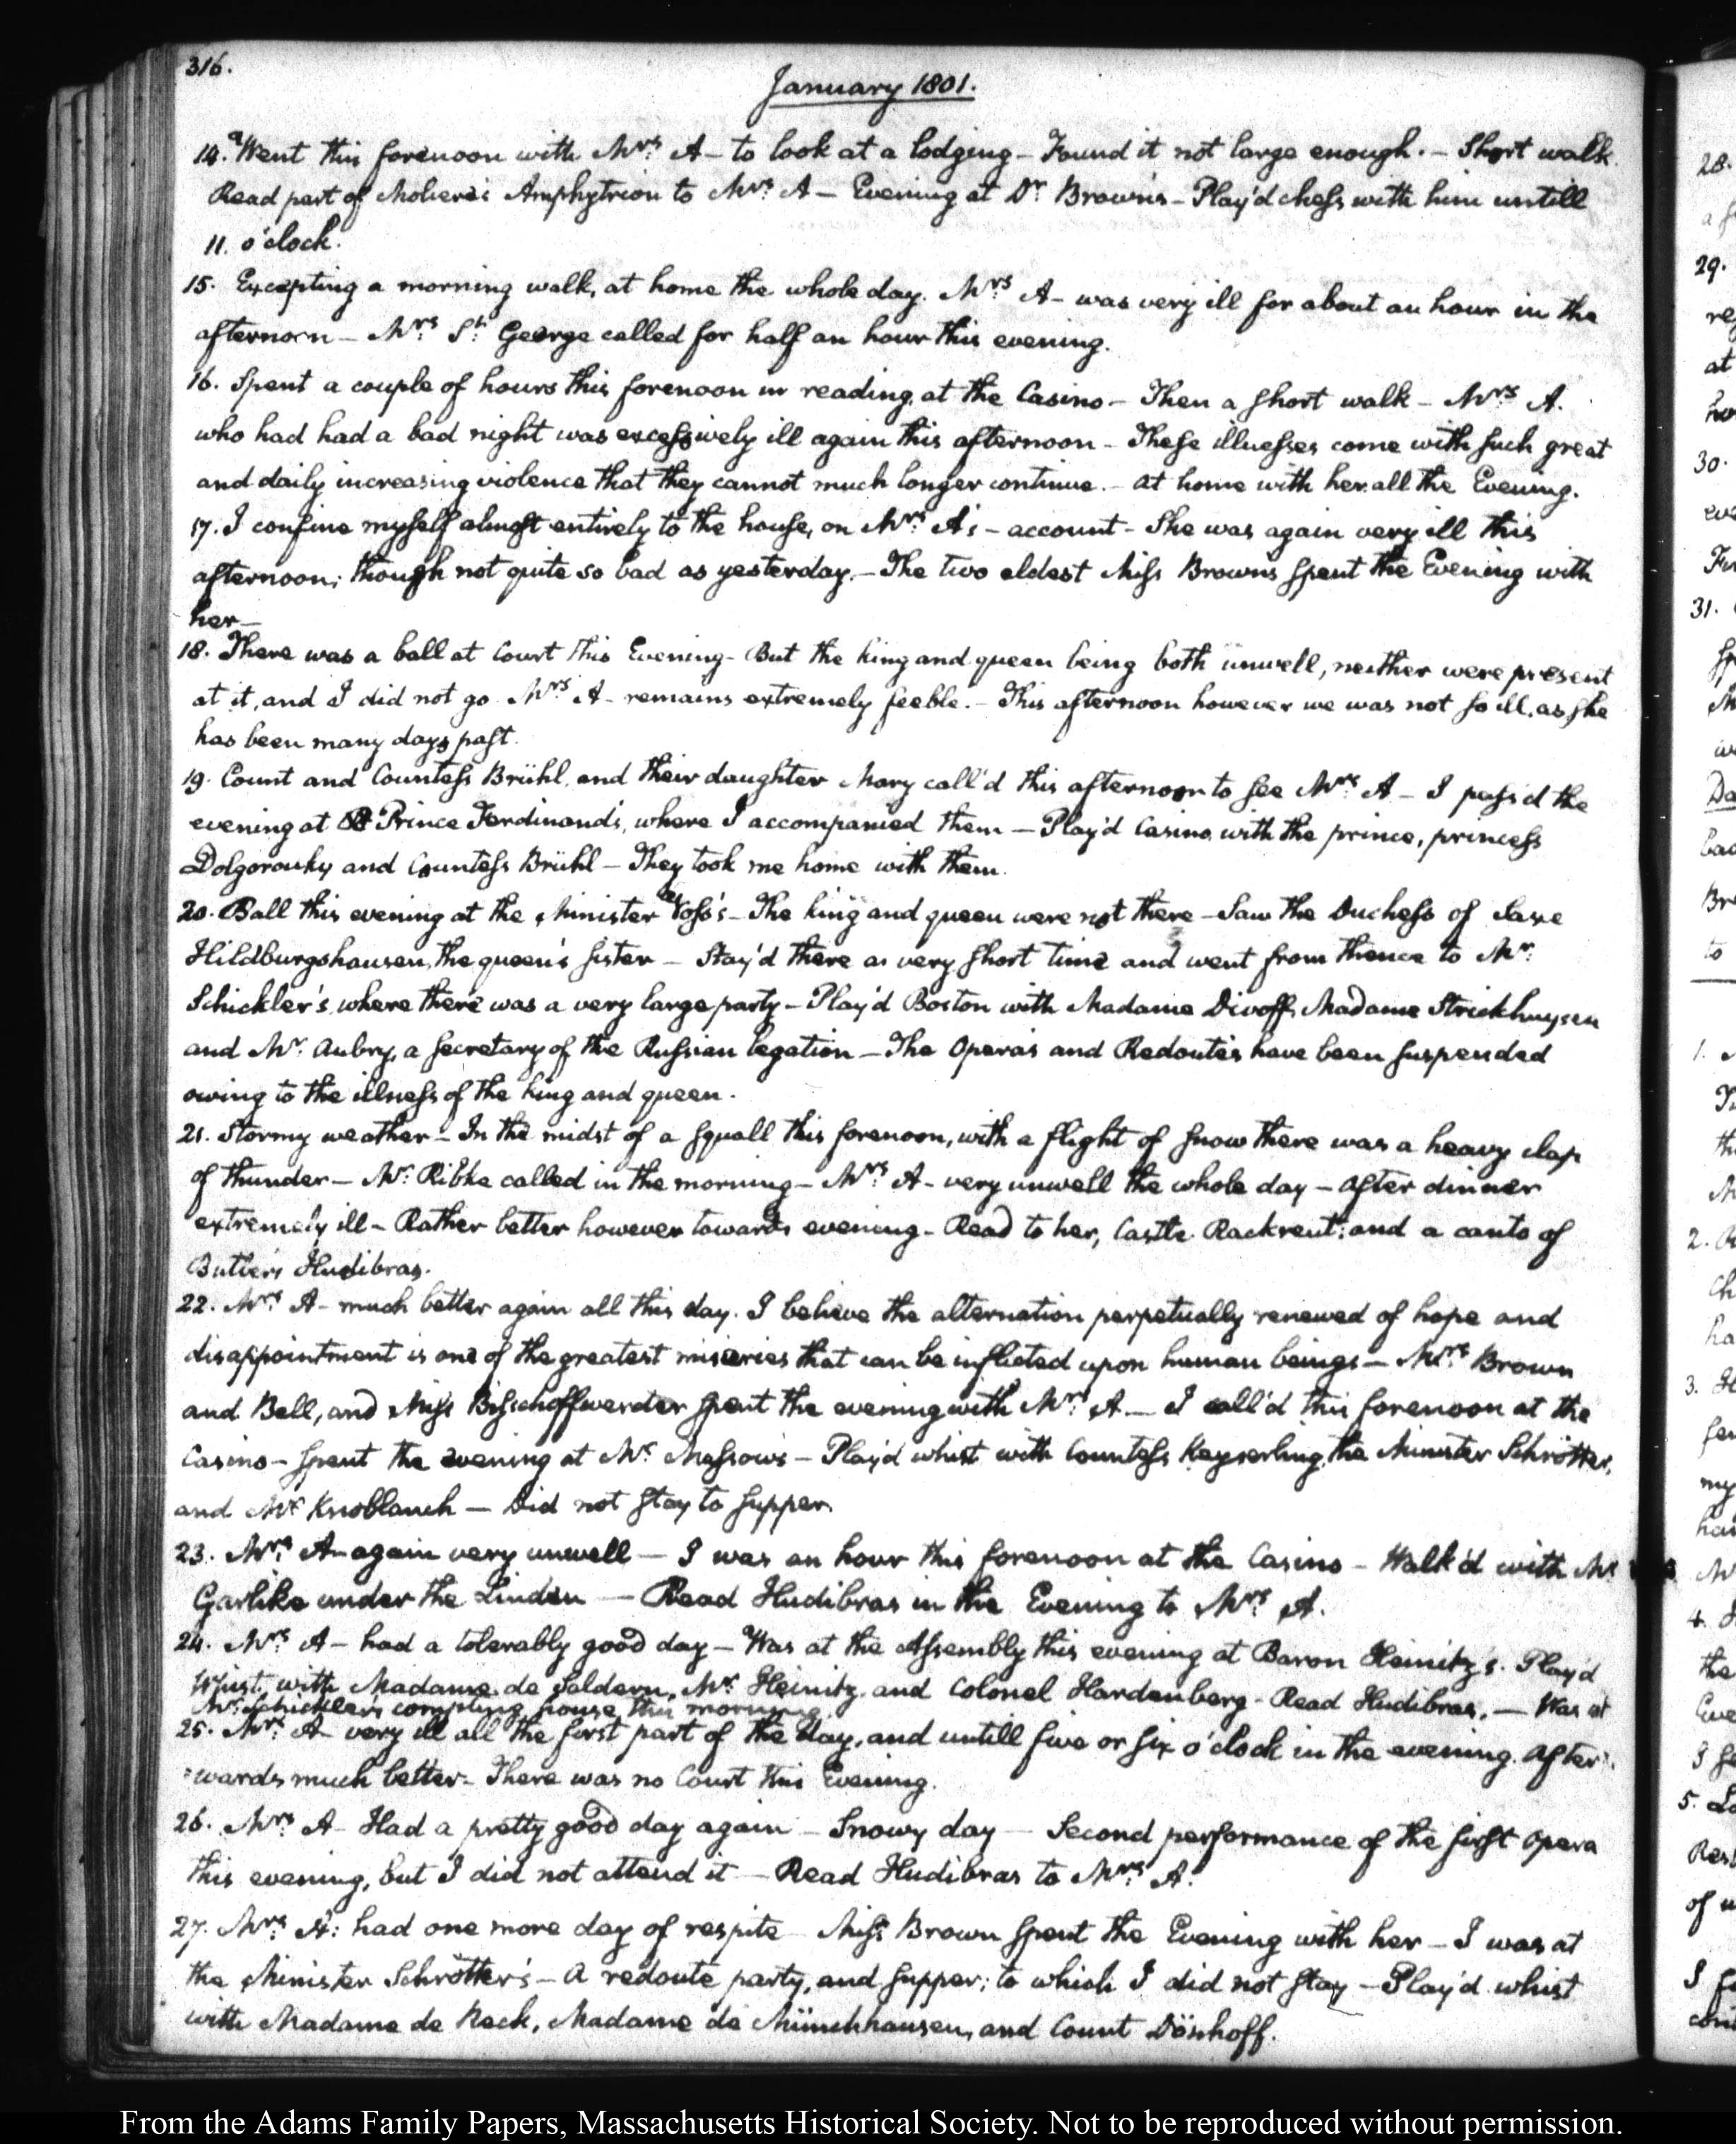 316.
January 1801.
14. Went this forenoon with Mrs. A— to look at a lodging— Found it not large enough.— Short walk.
Read part of Moliere's Amphytrion to Mrs. A— Evening at Dr. Brown's— Play'd chess with him untill
11. o'clock.
15. Excepting a morning walk, at home the whole day. Mrs. A— was very ill for about an hour in the
afternoon— Mrs. St. George called for half an hour this evening.
16. Spent a couple of hours this forenoon in reading, at the Casino— Then a short walk— Mrs. A.
who had had a bad night was excessively ill again this afternoon— These illnesses come with such great
and daily increasing violence that they cannot much longer continue.— at home with her all the Evening.
17. I confine myself almost entirely to the house, on Mrs. A's— account— She was again very ill this
afternoon; though not quite so bad as yesterday.— The two eldest Miss Browns spent the Evening with
her—
18. There was a ball at Court this Evening— But the king and queen being both unwell, neither were present
at it, and I did not go. Mrs. A— remains extremely feeble.— This afternoon however we was not so ill, as she
has been many days past.
19. Count and Countess Brühl, and their daughter Mary call'd this afternoon to see Mrs. A— I pass'd the
evening at Prince Ferdinand's, where I accompanied them— Play'd Casino with the prince, princess
Dolgorouky and Countess Brühl— They took me home with them.
20. Ball this evening at the Minister Voss's— The king and queen were not there— Saw the Duchess of Saxe
Hildburgshausen, the queen's sister— Stay'd there a very short time and went from thence to Mr.
Schickler's where there was a very large party— Play'd Boston with Madame Divoff, Madame Strickhuysen
and Mr. Aubry, a secretary of the Russian legation— The Opera's and Redoute's have been suspended
owing to the illness of the king and queen.
21. Stormy weather— In the midst of a squall this forenoon, with a flight of snow there was a heavy clap
of thunder— Mr. Ribke called in the morning— Mrs. A— very unwell the whole day— after dinner
extremely ill— Rather better however towards evening— Read to her, Castle Rackrent: and a canto of
Butler's Hudibras.
22. Mrs. A— much better again all this day. I believe the alternation perpetually renewed of hope and
disappointment is one of the greatest miseries that can be inflicted upon human beings— Mrs. Brown
and Bell, and Miss Bischoffwerder spent the evening with Mrs. A— I call'd this forenoon at the
Casino— spent the evening at Mr. Massow's— Play'd whist with Countess Keyserling, the Minister Schrötter,
and Mr. Knoblauch— Did not stay to supper.
23. Mrs. A— again very unwell— I was an hour this forenoon at the Casino— Walk'd with Mr.
Garlike under the Linden— Read Hudibras in the Evening to Mrs. A.
24. Mrs. A— had a tolerably good day— Was at the Assembly this evening at Baron Heinitz's. Play'd
Whist, with Madame de Seldern, Mr. Heinitz, and Colonel Hardenberg— Read Hudibras.— Was at
Mr. Schickler's compting house this morning.
25. Mrs. A— very ill all the first part of the day, and untill five or six o'clock in the evening. After
wards much better— There was no Court this Evening.
26. Mrs. A— Had a pretty good day again— Snowy day— Second performance of the first Opera
this evening, but I did not attend it— Read Hudibras to Mrs. A.
27. Mrs. A: had one more day of respite— Miss Brown spent the Evening with her— I was at
the Minister Schrötter's— A redoute party, and supper; to which I did not stay— Play'd whist
with Madame de Reck, Madame de Münchhausen, and Count Dönhoff.
From the Adams Family Papers, Massachusetts Historical Society. Not to be reproduced without permission.